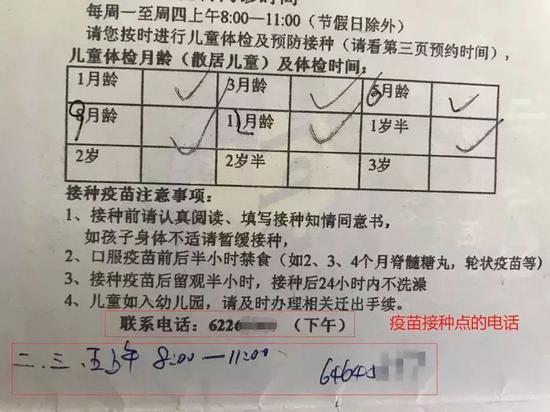 每周一至周四上午8:00—11:00（节假日除外）
请您按时进行儿童体检及预防接种（请看第三页预约时间），
儿童体检月龄（散居儿童）及体检时间：
1月龄 ✓ 3月龄 ✓ 6月龄 ✓
8月龄 ✓ 11月龄 ✓ 1岁半 ✓
2岁 2岁半 3岁
接种疫苗注意事项：
1、接种前请认真阅读、填写接种知情同意书，
如孩子身体不适请暂缓接种，
2、口服疫苗前后半小时禁食（如2、3、4个月脊髓糖丸，轮状疫苗等）
3、接种疫苗后留观半小时，接种后24小时内不洗澡
4、儿童如入幼儿园，请及时办理相关迁出手续。
联系电话：6226 （下午）
疫苗接种点的电话
二.三.五上午 8:00—11:00
64645